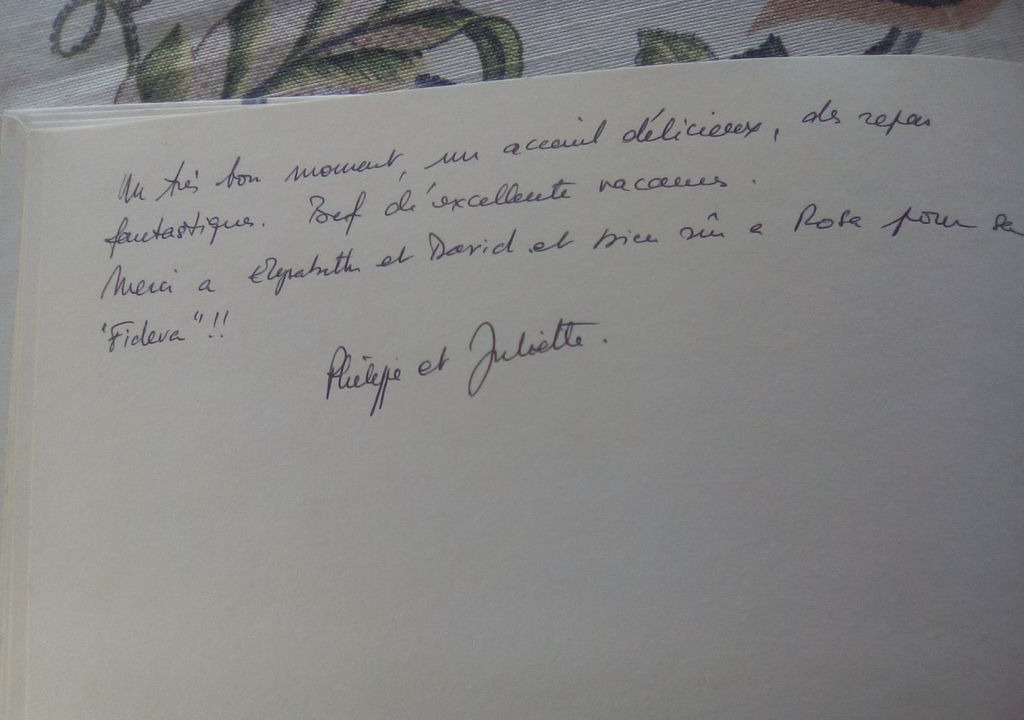 Un très bon moment, un acceuil délicieux, des repas
fantastiques. Bref d'excellente vacances.
Merci a Elyzabeth et David et bien sûr a Rosa pour sa
"Fideva"!!
Philippe et Juliette.